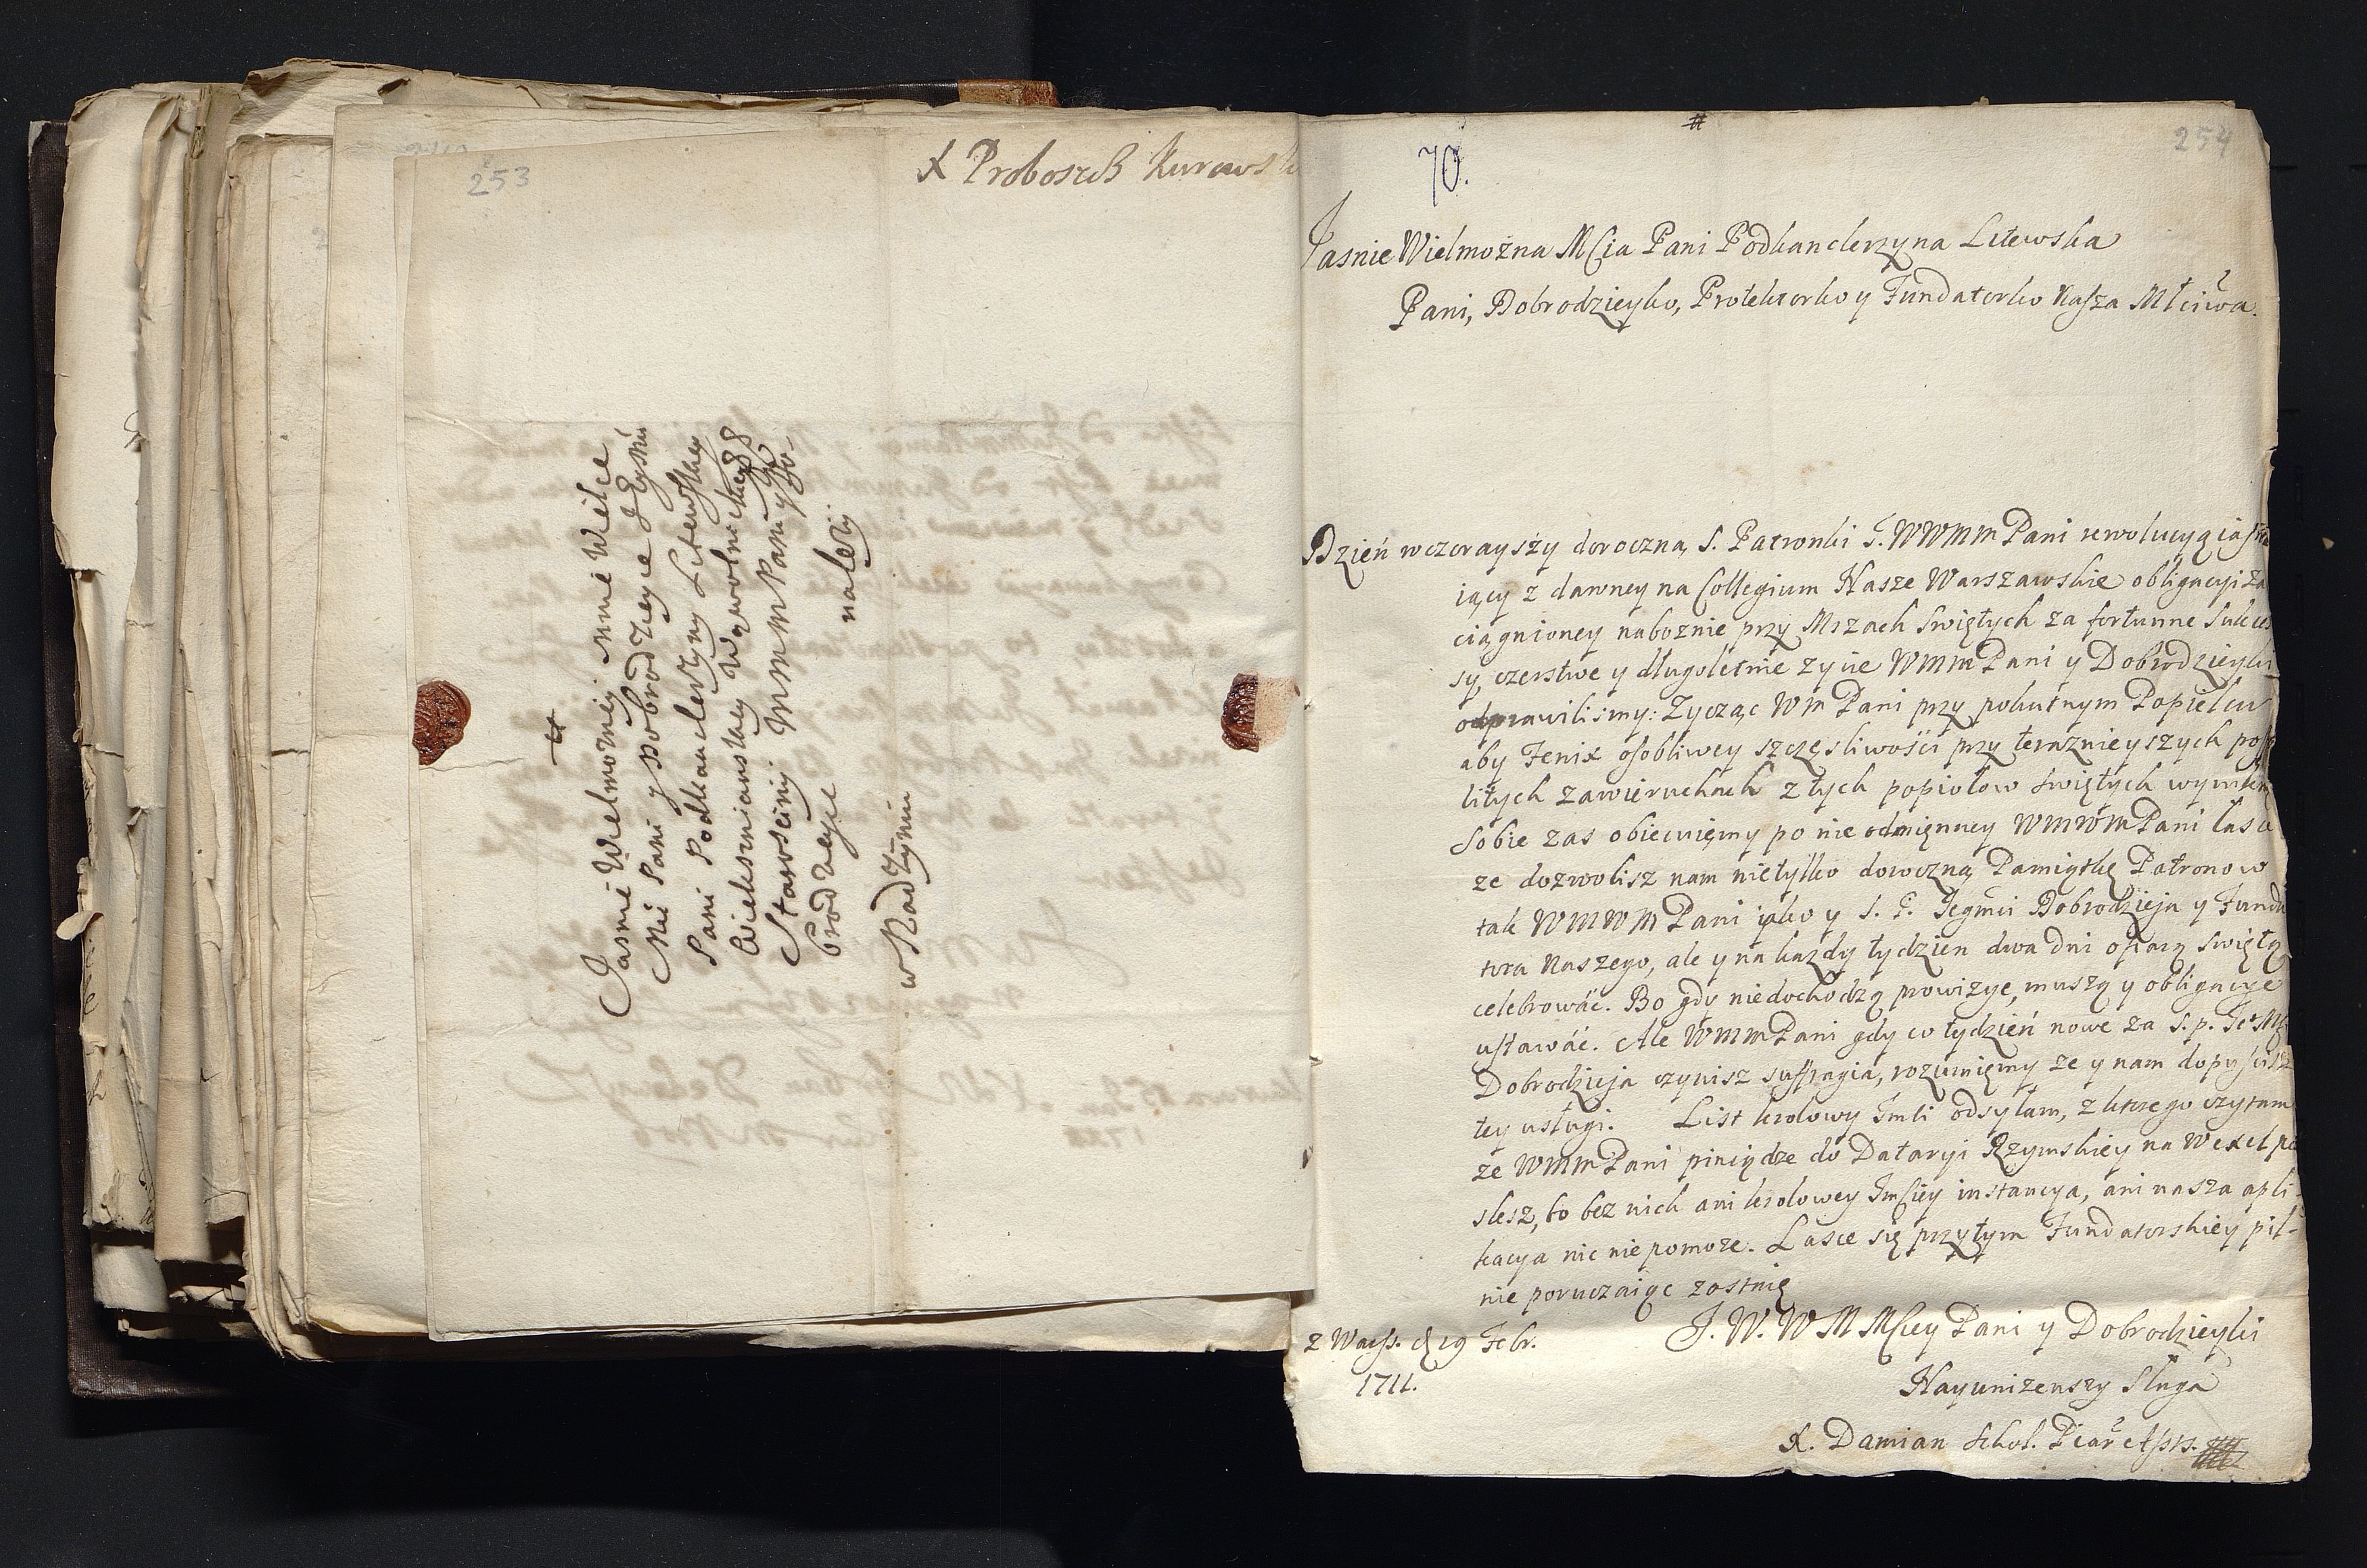 253
X Proboszcz Kurows
Jasnie Wielmozney Mnie Wielce
Mci Pani y Dobrodzieyce JEymci
Pani Podkanclerzyny Litewskiey
Wieksznianskiey Wąwolnickiey &&
Starosciny MMM Pani y Do-
brodzieyce należy
w Radzyniu
254
70.
Jasnie Wielmożna Mscia Pani Podkanclerzyna Litewska
Pani, Dobrodzieyko, Protektorko y Fundatorko Nasza Młciwa.
Dzień wczorayszy doroczną S. Patronki J.WWMM Pani rewolucyą
iący z dawney na Collegium Nasze Warszawskie obligacyi za
ciągnioney naboznie przy Mszach Swiętych za fortunne Sukces
sy, czerstwe y długoletnie zycie WMM Pani y Dobrodzieyki
odprawilismy: Zycząc WM Pani przy pokutnym Popielcu
aby Fenix osobliwey szczęsliwości przy teraznieyszych posp
litych zawieruchach z tych popiołow swiętych wynikn
Sobie zas obiecuięmy po nie odmięnney WMWM Pani łasce
ze dozwolisz nam nietylko doroczną Pamiątkę Patronow
tak WMWM Pani iako y S. P. Jegmci Dobrodzieja y Funda
tora Naszego, ale y na kazdy tydzien dwa dni ofiarę swiętą
celebrowáć. Bo gdy niedochodzą prowizye, muszą y obligacye
ustawáć. Ale WMM Pani gdy co tydzień nowe za S. p.
Dobrodzieja czynisz suffragia, rozumięmy ze y nam dopuscisz
tey usługi. List krolowy Jmści odsyłam, z ktorego czytam
ze WMM Pani pieniądze do Dataryi Rzymskiey na Wexel po
slesz, bo bez nich ani krolowey Jmściey instancya, ani nasza apli-
kacya nic nie pomoze. Łasce się przytym Fundatorskiey pil-
nie poruczaiąc zostaię
J. W. W M Msciey Pani y Dobrodzieyki
z Warss. d 19 Febr.
1711.
Nayunizenszy Sługa
X. Damian Schol. Piar